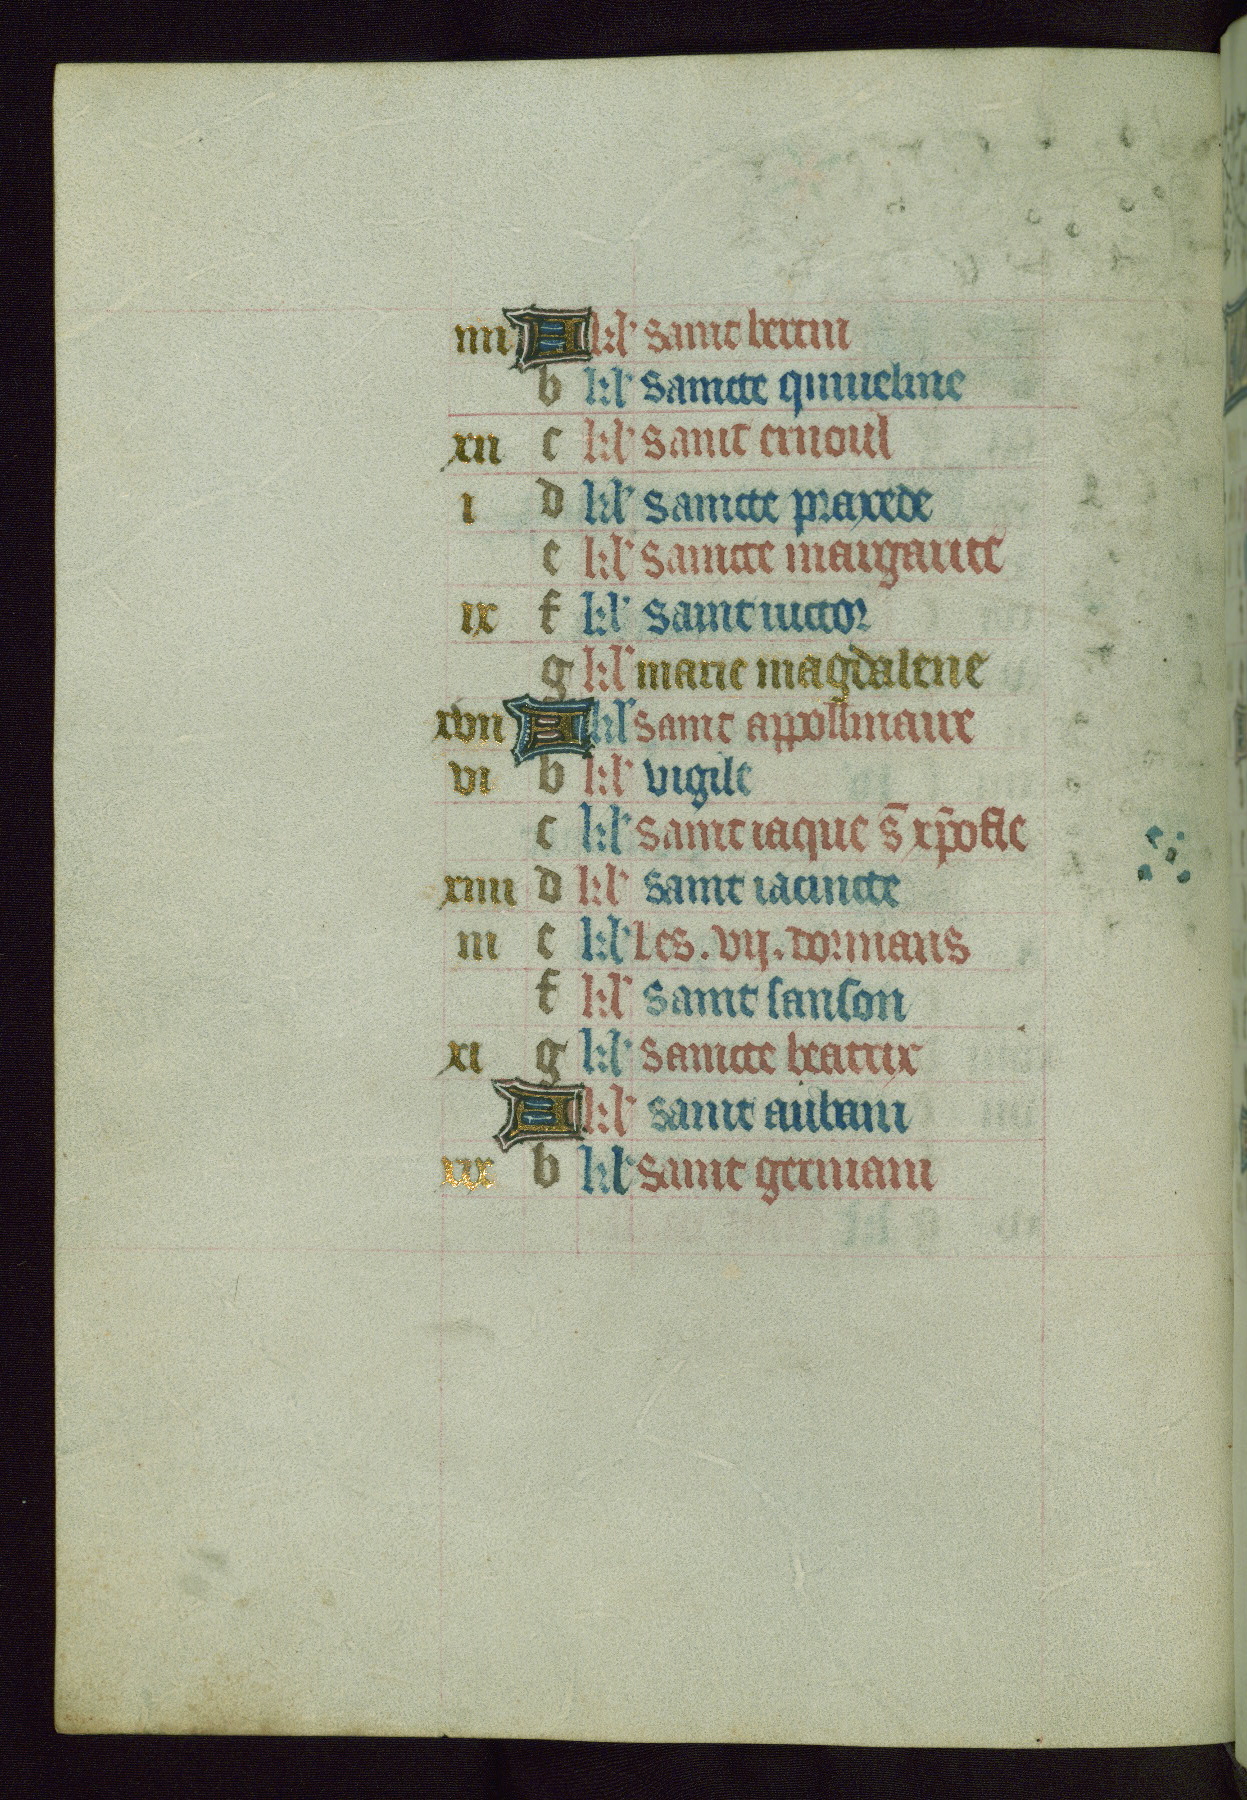 iiii A kl' saint bertin
b kl' Saincte quiueline
xii c kl' Saint ernoul
i d kl' Saincte praxede
e kl' Saincte margarite
ix f kl' Saint uictor
g kl' marie magdalene
xvii A kl' Saint appollinaire
vi b kl' vigile
c kl' Saint iaque s̄ xp̄ofle
xiiii d kl' Saint iacincte
iii e kl' Les .vij. dormans
f kl' Saint sanson
xi g kl' Saincte beatrix
A kl' Saint aubain
xix b kl' Saint germain